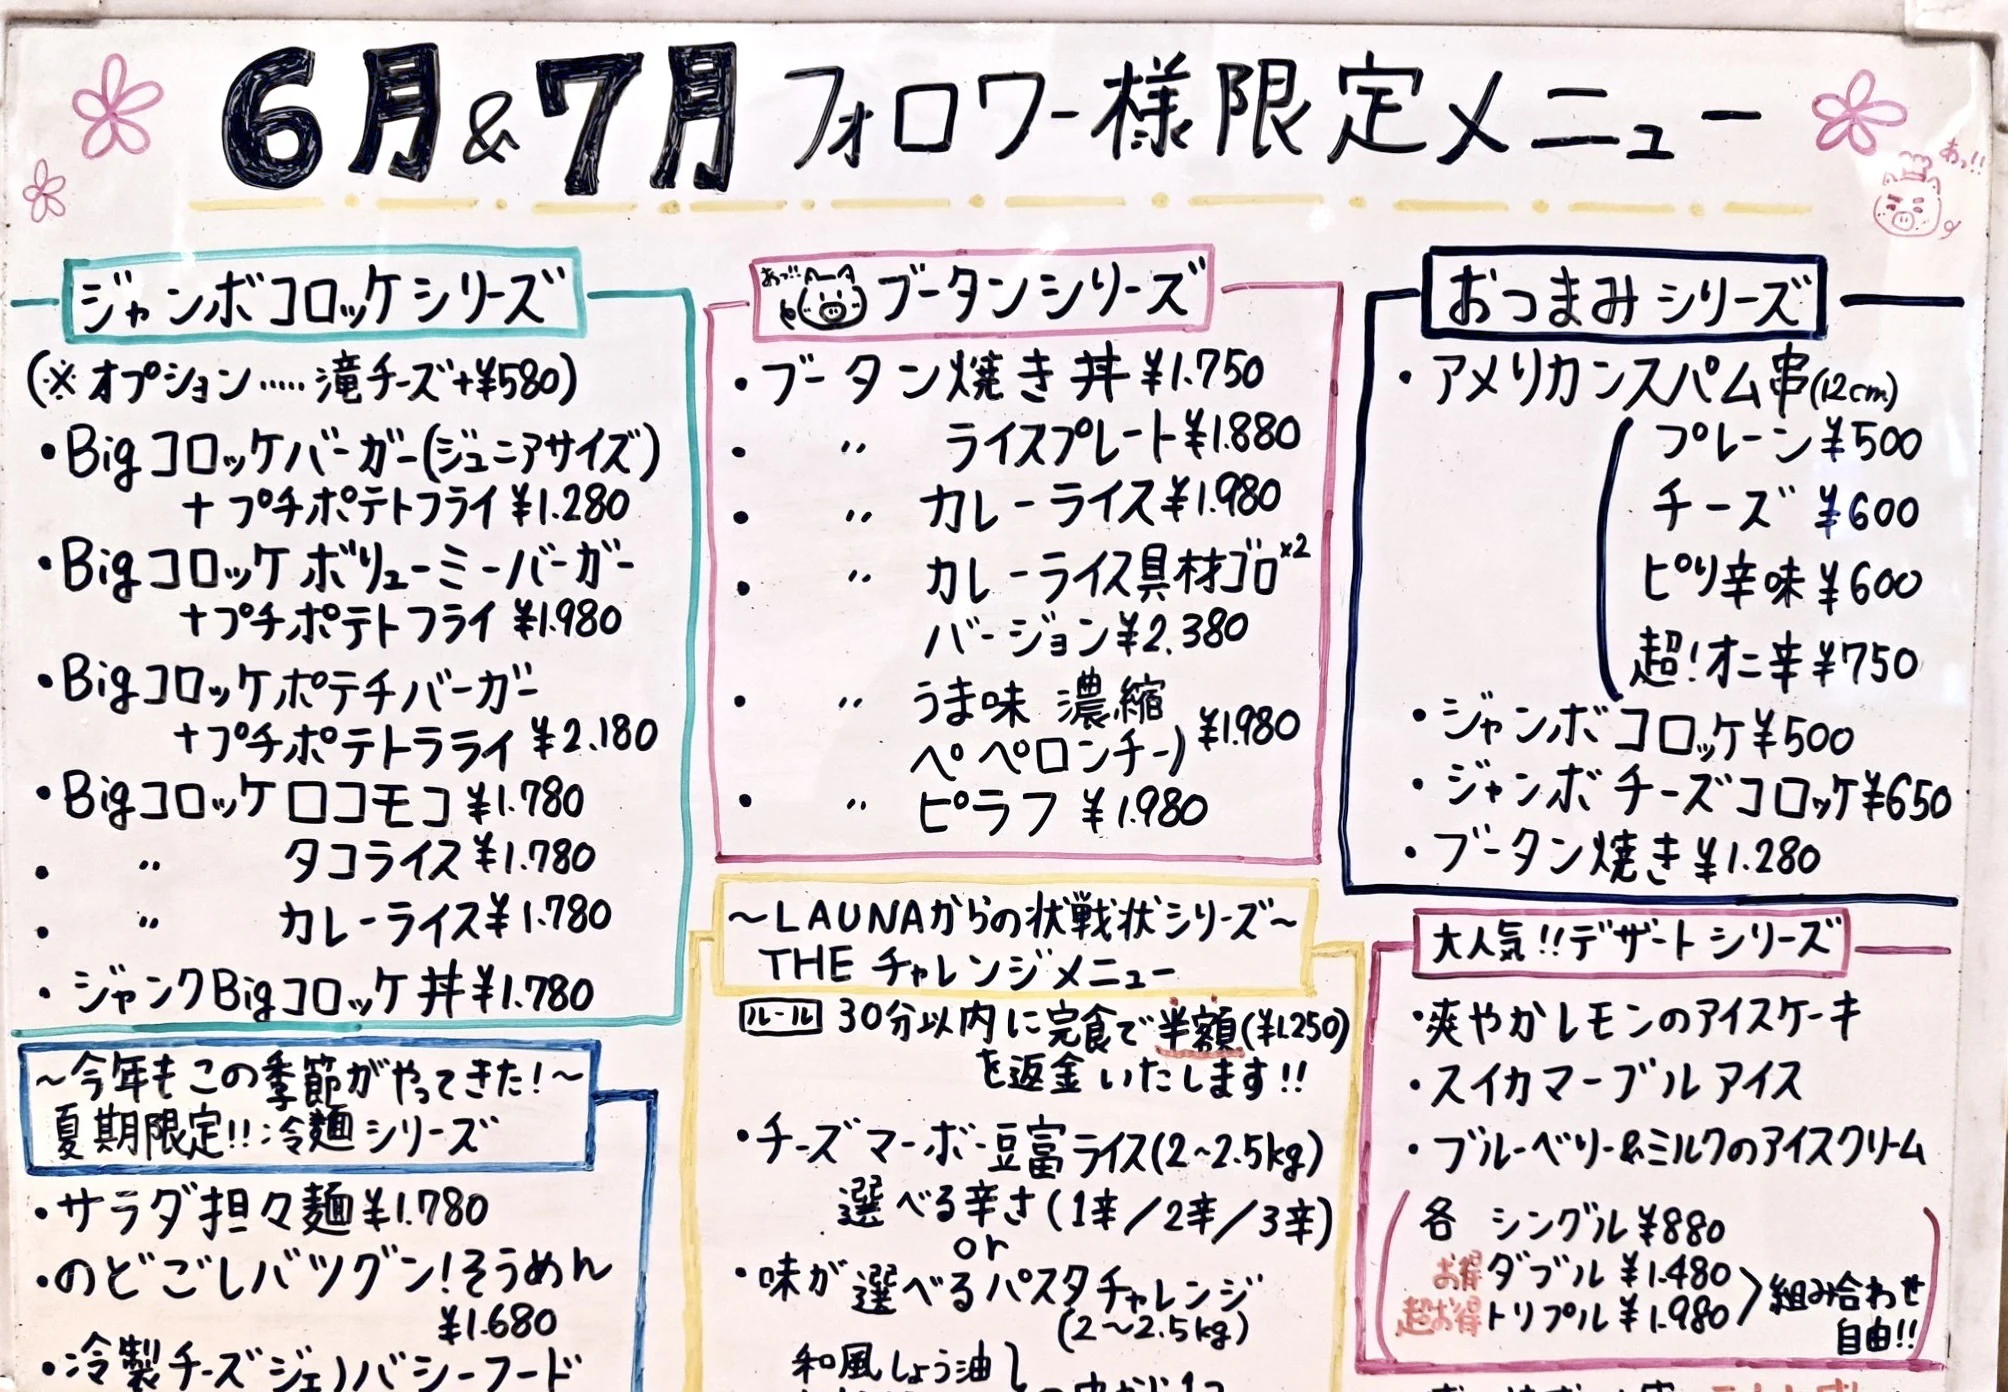 6月&7月フォロワー様限定メニュー
おっ!!
ジャンボコロッケシリーズ
(※オプション.....滝チーズ+¥580)
・Bigコロッケバーガー(ジュニアサイズ)
+プチポテトフライ¥1.280
・Bigコロッケボリューミーバーガー
+プチポテトフライ¥1.980
・Bigコロッケポテチバーガー
+プチポテトラライ¥2.180
・Bigコロッケロコモコ¥1.780
・〃 タコライス¥1.780
・〃 カレーライス¥1.780
・ジャンクBigコロッケ丼¥1.780
～今年もこの季節がやってきた!～
夏期限定!!:冷麺シリーズ
・サラダ担々麺¥1.780
・のどごしバツグン!そうめん
¥1.680
・冷製チーズジェノバシーフード
おっ!!
ブータンシリーズ
・ブータン焼き丼¥1.750
・〃 ライスプレート¥1.880
・〃 カレーライス¥1.980
・〃 カレーライス具材ゴロ×2
バージョン¥2.380
・〃 うま味 濃縮
ペペロンチーノ ¥1.980
・〃 ピラフ¥1.980
～LAUNAからの状戦状シリーズ～
THE チャレンジメニュー
ルール 30分以内に完食で半額(¥1.250)
を返金いたします!!
・チーズマーボー豆富ライス(2~2.5kg)
選べる辛さ(1辛/2辛/3辛)
or
・味が選べるパスタチャレンジ
(2～2.5kg)
和風しょう油
おつまみシリーズ
・アメリカンスパム串(12cm)
プレーン¥500
チーズ¥600
ピリ辛味¥600
超!オニ辛¥750
・ジャンボコロッケ¥500
・ジャンボチーズコロッケ¥650
・ブータン焼き¥1.280
大人気!!デザートシリーズ
・爽やかレモンのアイスケーキ
・スイカマーブルアイス
・ブルーベリー&ミルクのアイスクリーム
各 シングル¥880
お得ダブル¥1.480
超お得トリプル¥1.980
組み合わせ
自由!!